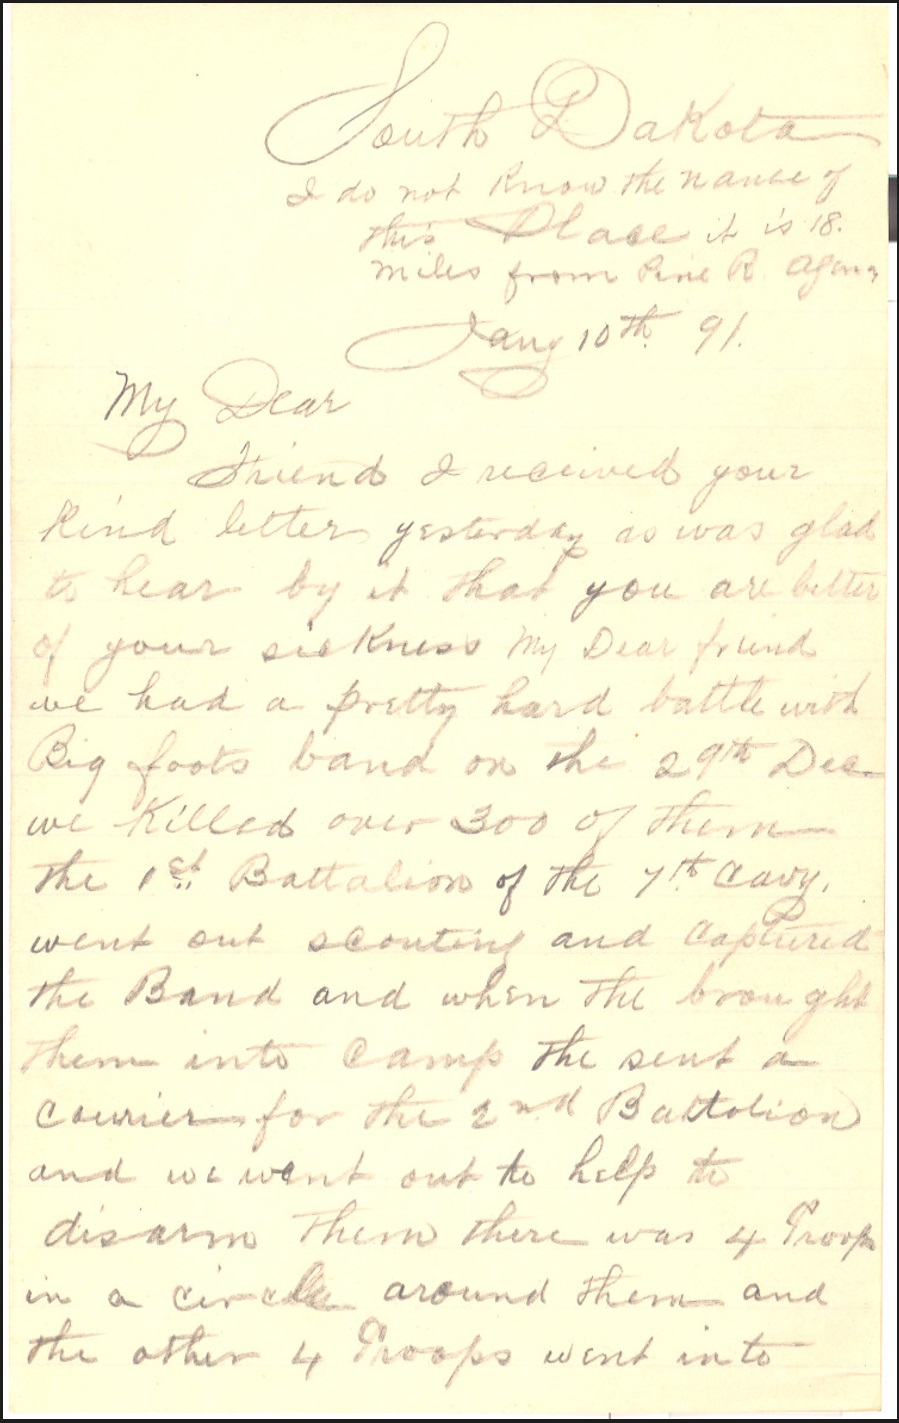 South Dakota
I do not Know the name of
this Place it is 18.
miles from Pine R. Agen
Jany 10th 91.
My Dear
Friend I received your
Kind letter yesterday as was glad
to hear by it that you are better
of your sickness My Dear friend
we had a pretty hard battle with
Big foots band on the 29th Dec.
we Killed over 300 of them
the 1st. Battalion of the 7th. Cavy.
went out scouting and captured
the Band and when the brought
them into Camp the sent a
Courier for the 2nd Battolion
and we went out to help to
disarm them there was 4 Troops
in a circle around them and
the other 4 Troops went into